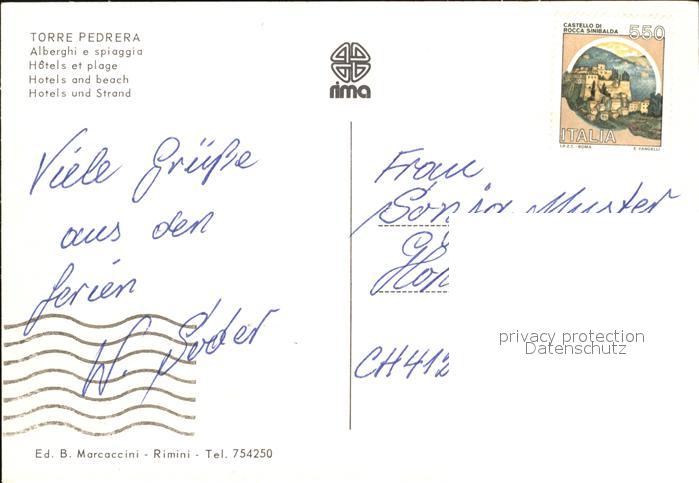 TORRE PEDRERA
Alberghi e spiaggia
Hôtels et plage
Hotels and beach
Hotels und Strand
rima
CASTELLO DI
ROCCA SINIBALDA
550
ITALIA
I.P.Z.S. - ROMA E. VANGELLI
Viele Grüße
aus den
ferien
W. Soder
Frau
Sonja Muster
CH 412
privacy protection
Datenschutz
Ed. B. Marcaccini - Rimini - Tel. 754250